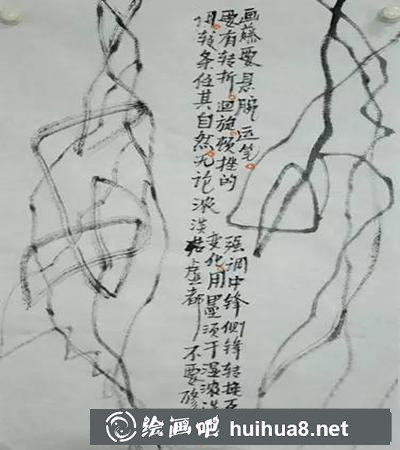 画藤要悬腕运笔
要有转折迴旋顿挫的
转条任其自然无论浓淡枯虚都不要修
强调中锋侧锋转换互
变化用墨须干湿浓淡
绘画吧 huihua8.net